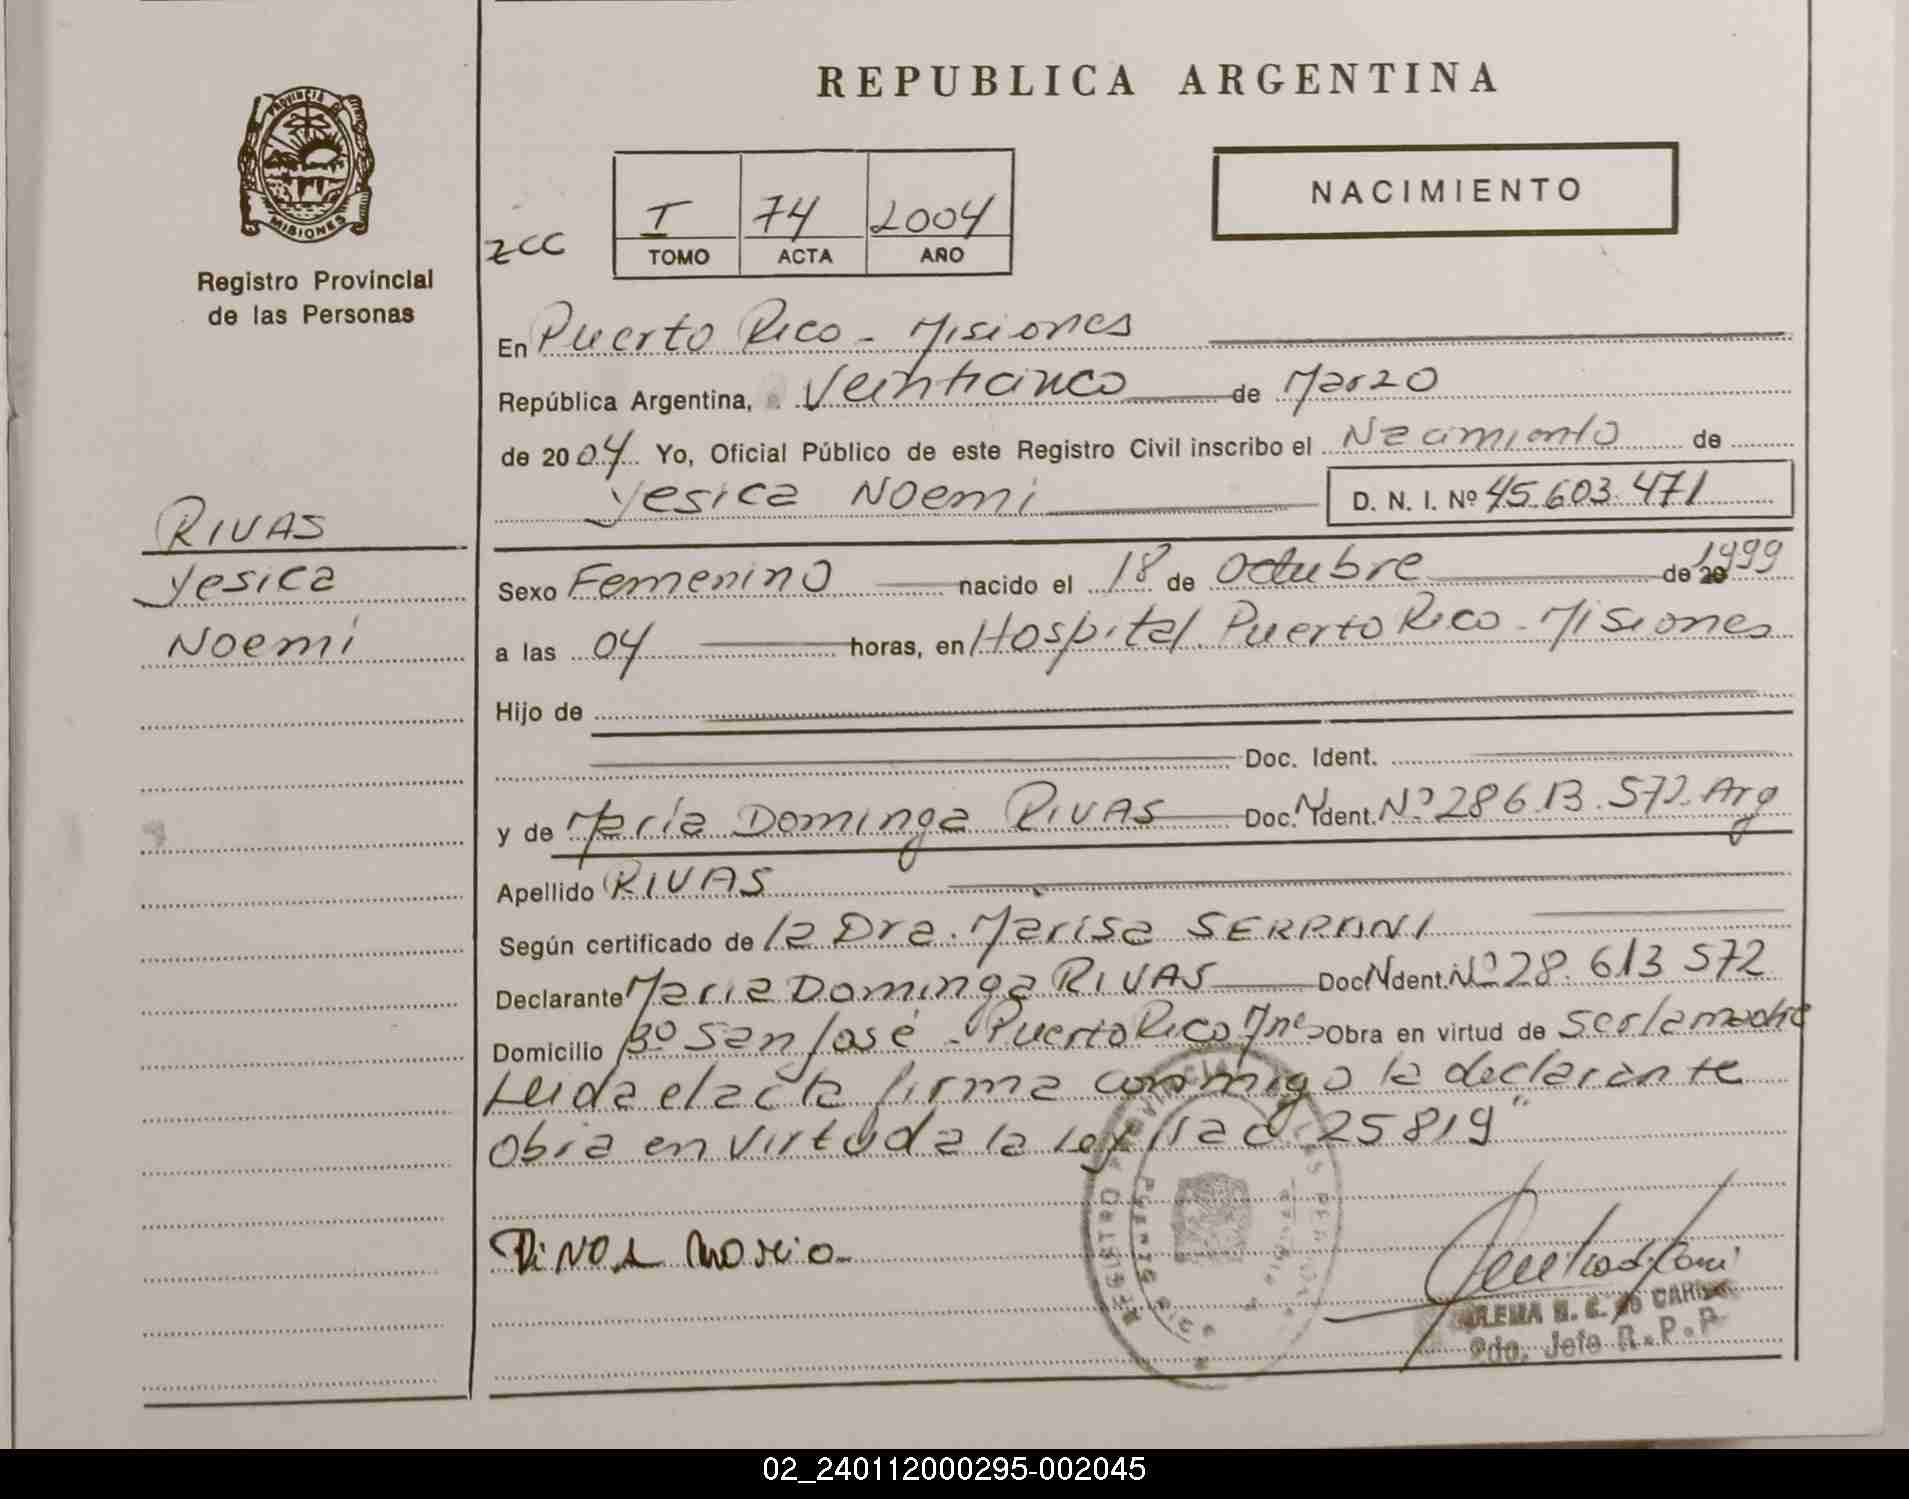 REPUBLICA ARGENTINA
PROVINCIA DE
MISIONES
Registro Provincial
de las Personas
NACIMIENTO
I 74 2004
TOMO ACTA AÑO
zcc
En Puerto Rico - Misiones
República Argentina, Veinticinco de Marzo
de 2004 Yo, Oficial Público de este Registro Civil inscribo el Nacimiento de
Yesica Noemi D. N. I. Nº 45.603.471
RIVAS
Yesica
Noemi
Sexo Femenino nacido el 18 de Octubre de 20 1999
a las 04 horas, en Hospital Puerto Rico - Misiones
Hijo de
Doc. Ident.
y de Maria Dominga RIVAS Doc. Ident. Nº 28613.572. Arg
Apellido RIVAS
Según certificado de la Dra. Marisa
Declarante Maria Dominga RIVAS Doc. Ident. Nº 28.613 572
Domicilio Bº San José - Puerto Rico Mnes Obra en virtud de ser la madre
Leida el acta firma conmigo la declarante
Obra en virtud a la ley 25819"
Maria
REGISTRO PROVINCIAL DE LAS PERSONAS
2do. Jefe R.P.P.
02_240112000295-002045